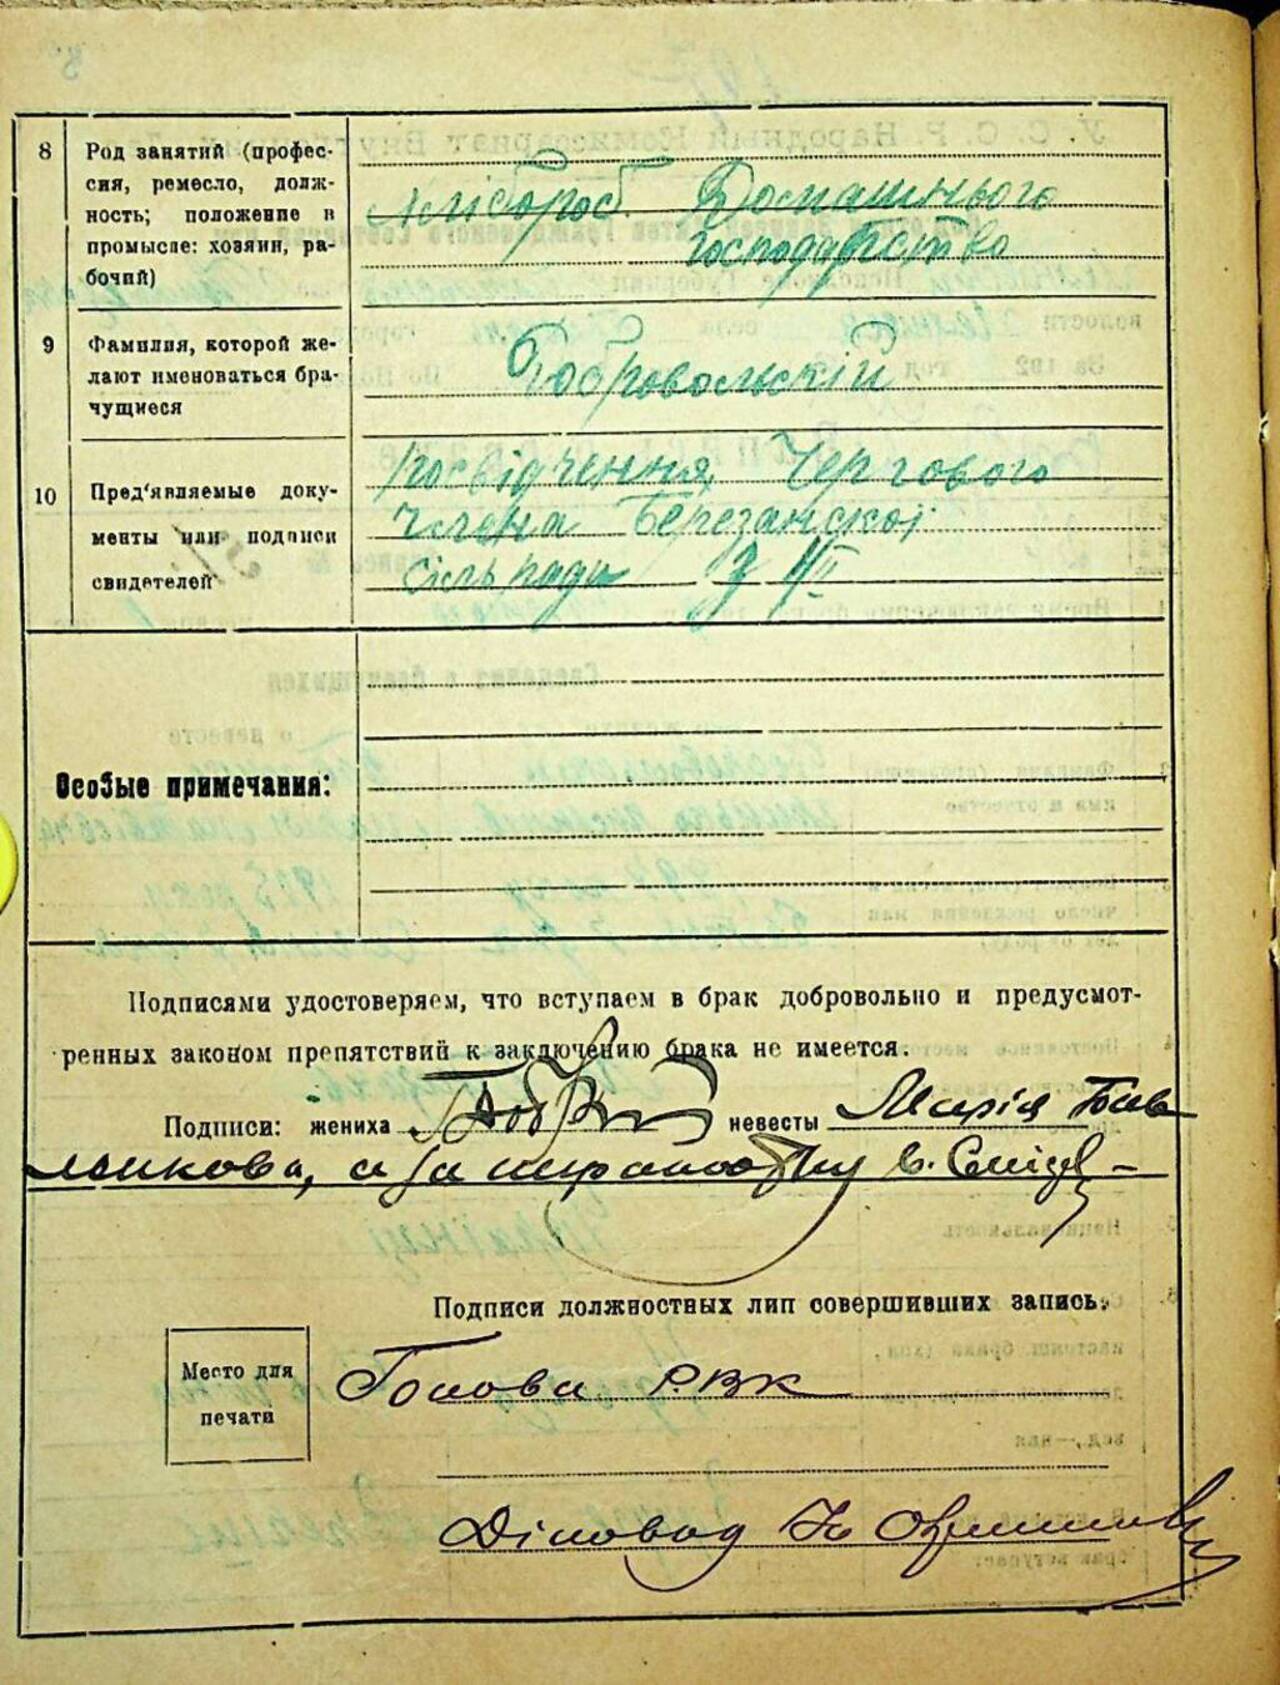 8 Род занятий (профес-
сия, ремесло, долж-
ность; положение в
промысле: хозяин, ра-
бочий)
Хлібороб. Домашнього
господарство
9 Фамилия, которой же-
лают именоваться бра-
чущиеся
Добровольскій
10 Пред'являемые доку-
менты или подписи
свидетелей
Посвідчення Чергового
члена Березанскої
сільради З
Особые примечания:
Подписями удостоверяем, что вступаем в брак добровольно и предусмот-
ренных законом препятствий к заключению брака не имеется.
Подписи: жениха невесты Марія
а за неграмотну
Подписи должностных лиц совершивших запись.
Место для
печати
Голова РВК
Діловод